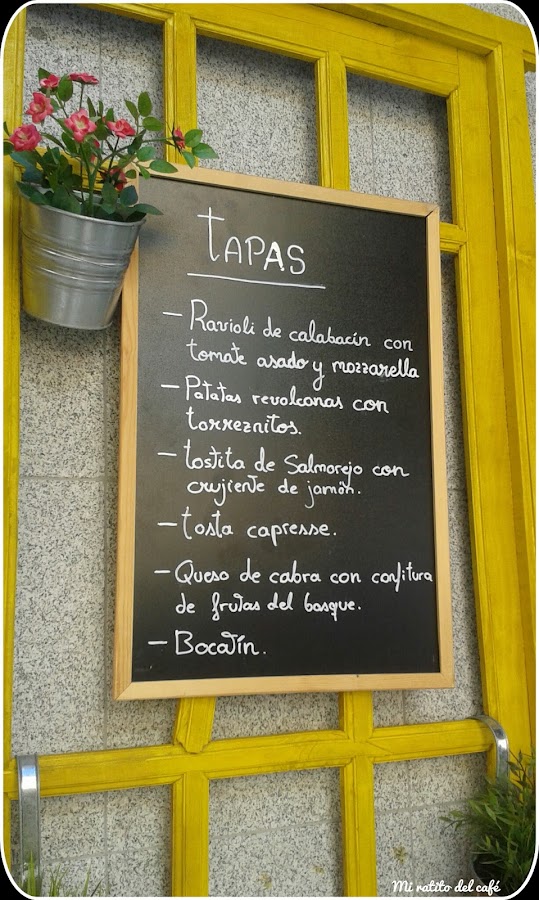 TAPAS
- Ravioli de calabacín con
tomate asado y mozzarella
- Patatas revolconas con
torreznitos.
- tostita de Salmorejo con
crujiente de jamón.
- tosta capresse.
- Queso de cabra con confitura
de frutas del bosque.
- Bocatín.
Mi ratito del café